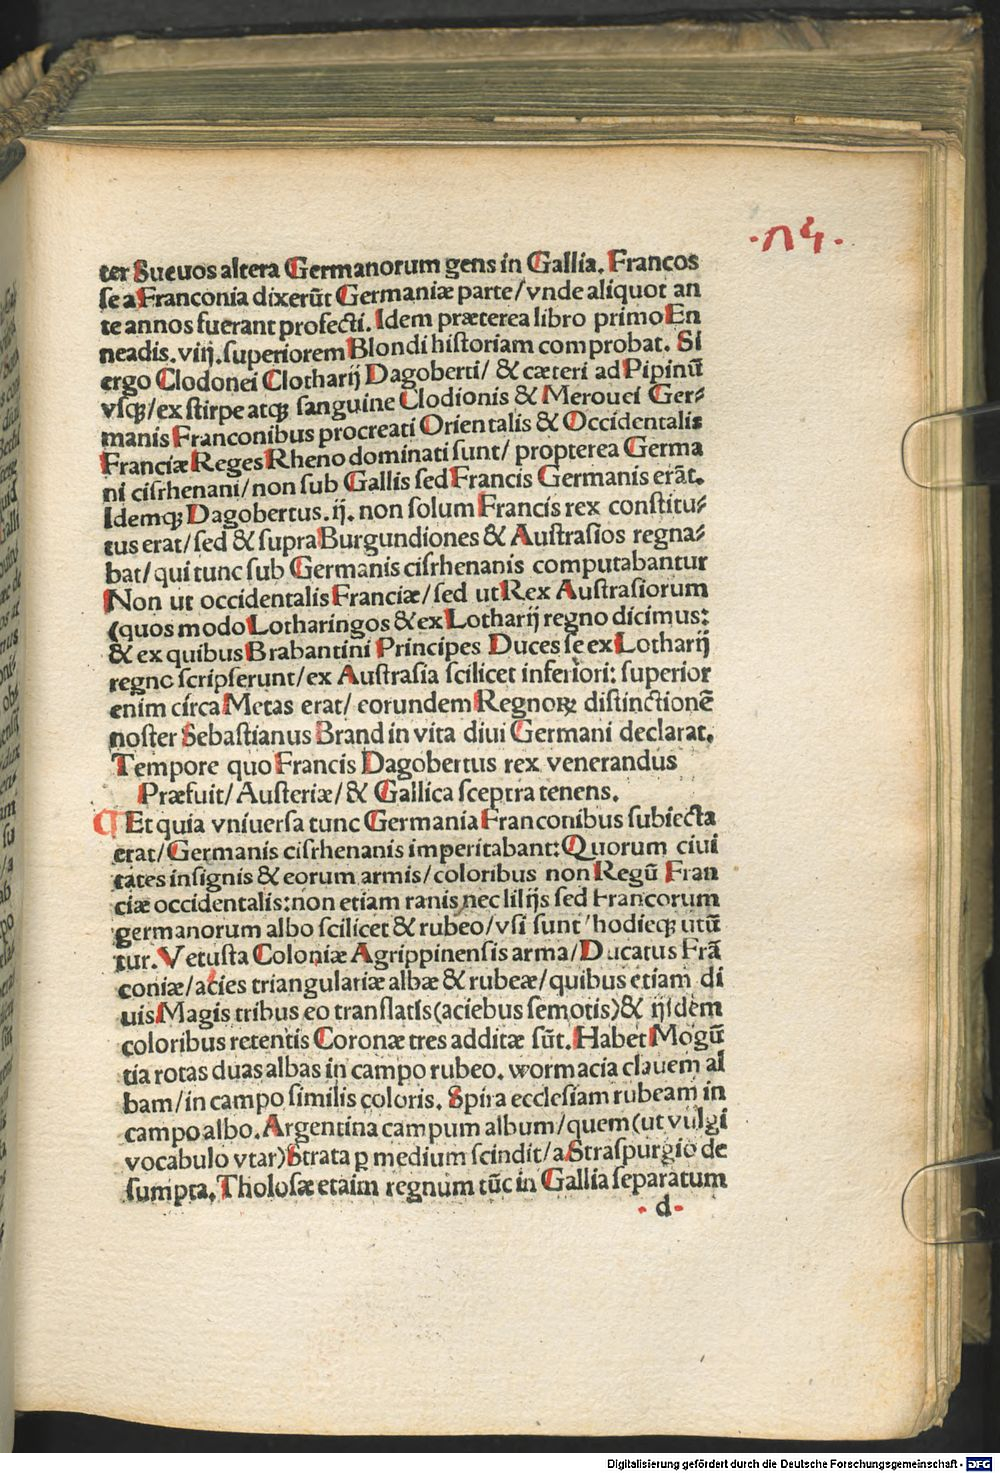 ·14·
ter Sueuos altera Germanorum gens in Gallia. Francos
se a Franconia dixerũt Germaniæ parte/ vnde aliquot an
te annos fuerant profecti. Idem præterea libro primo En
neadis. viij. superiorem Blondi historiam comprobat. Si
ergo Clodonei Clotharij Dagoberti/ & cæteri ad Pipinũ
vsqꝫ/ ex stirpe atqꝫ sanguine Clodionis & Merouei Ger⸗
manis Franconibus procreati Orientalis & Occidentalis
Franciæ Reges Rheno dominati sunt/ propterea Germa
ni cisrhenani/ non sub Gallis sed Francis Germanis erãt.
Idemqꝫ Dagobertus. ij. non solum Francis rex constitu⸗
tus erat/ sed & supra Burgundiones & Austrasios regna⸗
bat/ qui tunc sub Germanis cisrhenanis computabantur
Non ut occidentalis Franciæ/ sed ut Rex Austrasiorum
(quos modo Lotharingos & ex Lotharij regno dicimus:
& ex quibus Brabantini Principes Duces se ex Lotharij
regno scripserunt/ ex Austrasia scilicet inferiori: superior
enim círca Metas erat/ eorundem Regnoꝝ distinctionẽ
noster Sebastianus Brand in vita diui Germani declarat.
Tempore quo Francis Dagobertus rex venerandus
Præfuit/ Austeriæ/ & Gallica sceptra tenens.
¶ Et quia vniuersa tunc Germania Franconibus subiecta
erat/ Germanis cisrhenanis imperitabant: Quorum ciui
tates insignis & eorum armis/ coloribus non Regũ Fran
ciæ occidentalis: non etiam ranis nec lilijs sed Francorum
germanorum albo scilicet & rubeo/ vsi sunt hodieqꝫ utũ
tur. Vetusta Coloniæ Agrippinensis arma/ Ducatus Frã
coniæ/ acies triangulariæ albæ & rubeæ/ quibus etiam di
uis Magis tribus eo translatis (aciebus semotis) & ijsdem
coloribus retentis Coronæ tres additæ sũt. Habet Mogũ
tia rotas duas albas in campo rubeo. wormacia clauem al
bam/ in campo similis coloris. Spira ecclesiam rubeam in
campo albo. Argentina campum album/ quem (ut vulgi
vocabulo vtar) Strata ꝑ medium scindit/ a Straspurgio de
sumpta. Tholosæ etaim regnum tũc in Gallia separatum
·d·
Digitalisierung gefördert durch die Deutsche Forschungsgemeinschaft - DFG